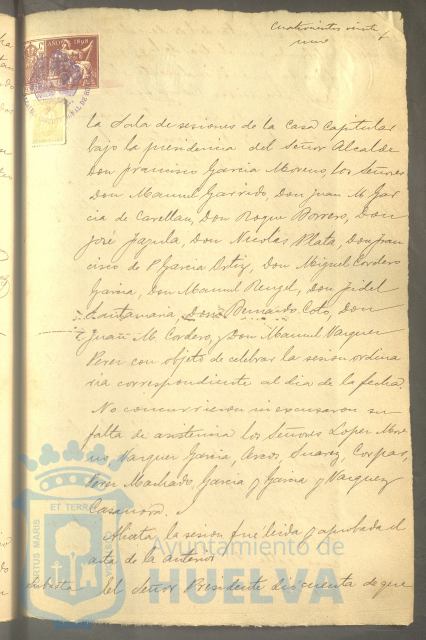 Cuatrocientos veinte y
uno
AÑO 1898
la Sala de sesiones de la Casa Capitular
bajo la presidencia del Señor Alcalde
Don Francisco Garcia Moreno, los Señores
Don Manuel Garrido, Don Juan M. Gar
cia de Carellan, Don Roque Borrero, Don
José Jazula, Don Nicolas Plata, Don Fran
cisco de P. Garcia Ortiz, Don Miguel Cordero
Garcia, Don Manuel Rengel, Don Fidel
Santamaria, Don Bernardo Coto, Don
Juan M. Cordero, y Don Manuel Vazquez
Perez con objeto de celebrar la sesion ordina
ria correspondiente al dia de la fecha.
No concurrieron ni excusaron su
falta de asistencia los Señores Lopez More
no, Vazquez Garcia, Arcos, Suarez, Corpas,
Perez Machado, Garcia y Garcia y Vazquez
Casanova.
Abierta la sesion fué leida y aprobada el
acta de la anterior
Subasta
El Señor Presidente dió cuenta de que
PORTUS MARIS ET TERRÆ
Ayuntamiento de
HUELVA